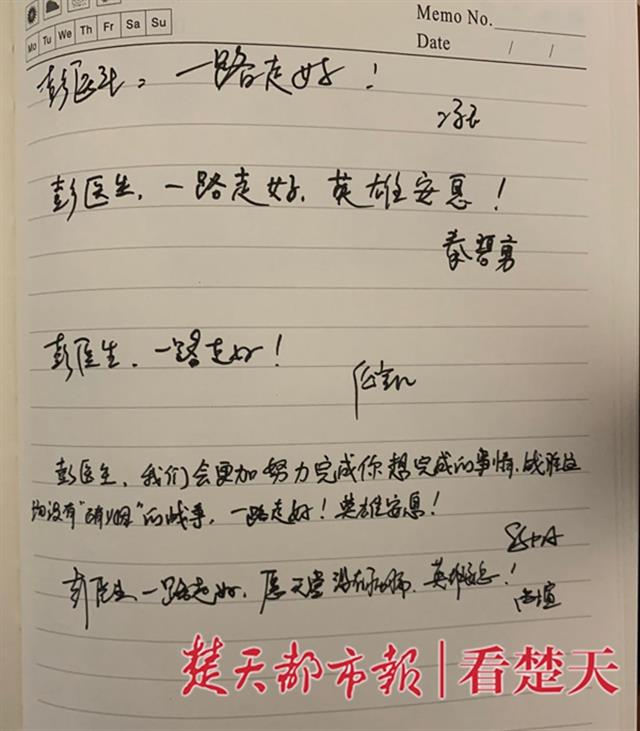 Memo No.
Mo Tu We Th Fr Sa Su
Date / /
彭医生，一路走好！
彭医生，一路走好，英雄安息！
秦哲勇
彭医生，一路走好！
彭医生，我们会更加努力完成你想完成的事情，战胜这
场没有“硝烟”的战争，一路走好！英雄安息！
彭医生，一路走好，愿天堂没有病痛，英雄安息！
楚天都市報|看楚天